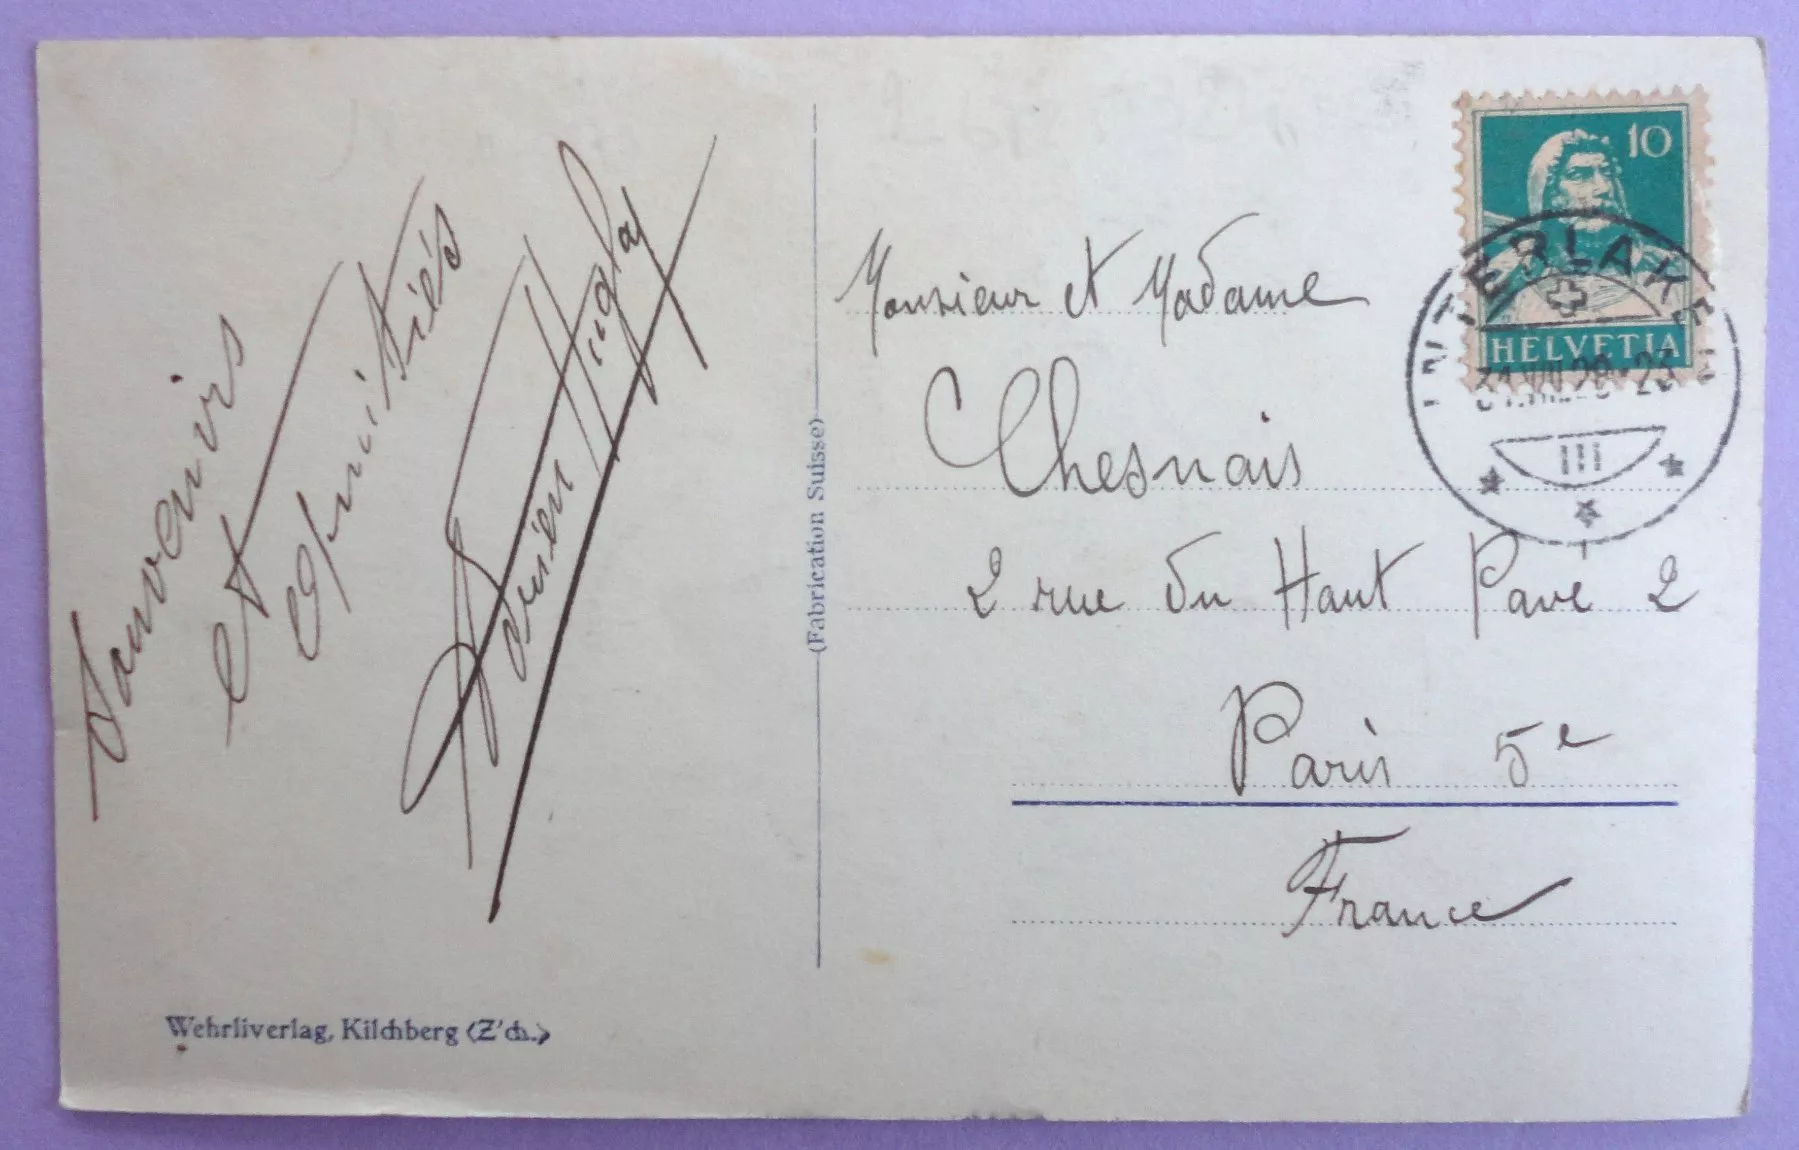 Souvenirs
et
amitiés
(Fabrication Suisse)
Wehrliverlag, Kilchberg (Z'ch.)
10
HELVETIA
INTERLAKEN
III
Monsieur et Madame
Chesnais
2 rue du Haut Pavé 2
Paris 5e
France